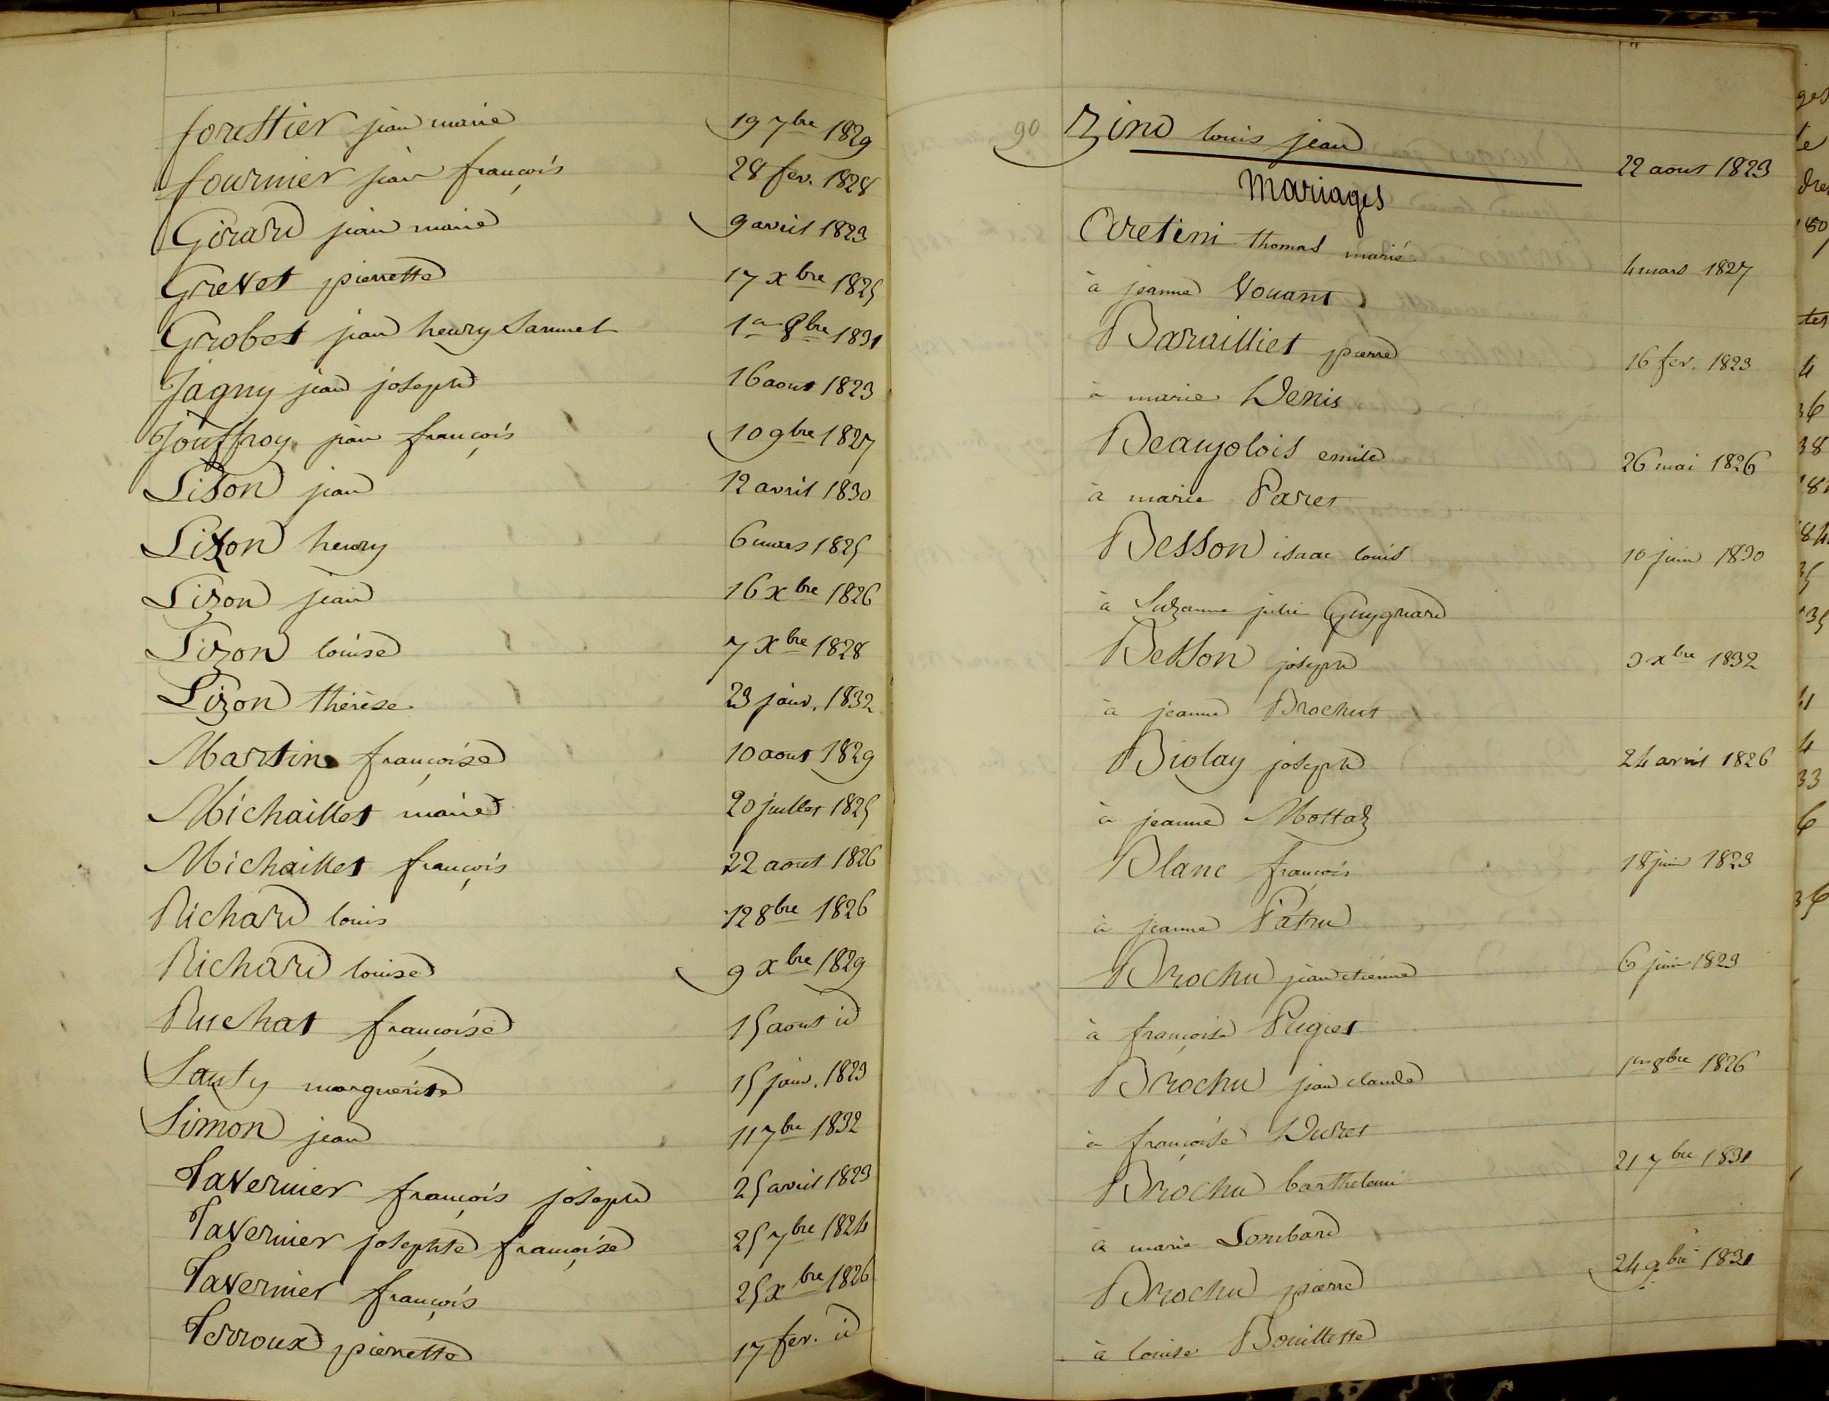 forestier jean marie 19 7bre 1829
fournier jean françois 28 fev. 1828
Girard jean marie 9 avril 1823
Grevet pierrette 17 Xbre 1825
Grobet jean henry Samuel 1er 8bre 1831
Jagny jean joseph 16 aout 1823
Jouffroy jean françois 10 9bre 1827
Lison jean 12 avril 1830
Lizon henry 6 mars 1825
Lizon jean 16 Xbre 1826
Lizon louise 7 Xbre 1828
Lizon thérèse 23 janv. 1832
Martin françoise 10 aout 1829
Michaillet marie 20 juillet 1825
Michaillet françois 22 aout 1826
Richard louis 12 8bre 1826
Richard louise 9 Xbre 1829
Ruchat françoise 15 aout id
Sauty marguerite 15 janv. 1823
Simon jean 11 7bre 1832
Tavernier françois joseph 25 avril 1823
Tavernier josephte françoise 25 7bre 1824
Tavernier françois 25 Xbre 1826
Terroux pierrette 17 fev. id
90
Zind louis jean 22 aout 1823
Mariages
Aretini thomas marié 4 mars 1827
à jeanne Vouant
Barailliet pierre 16 fev. 1823
à marie Denis
Beaujolois emile 26 mai 1826
à marie Paret
Besson isaac louis 10 juin 1830
à Suzanne julie Guygnard
Besson joseph 3 Xbre 1832
à jeanne Brochut
Biolay joseph 24 avril 1826
à jeanne Mottaz
Blanc françois 18 juin 1823
à jeanne Patru
Brochu jean etienne 6 juin 1823
à françoise Puget
Brochu jean claude 1er 8bre 1826
à françoise Duret
Brochu barthelemi 21 7bre 1831
à marie Lombard
Brochu pierre 24 9bre 1831
à louise Bouillette